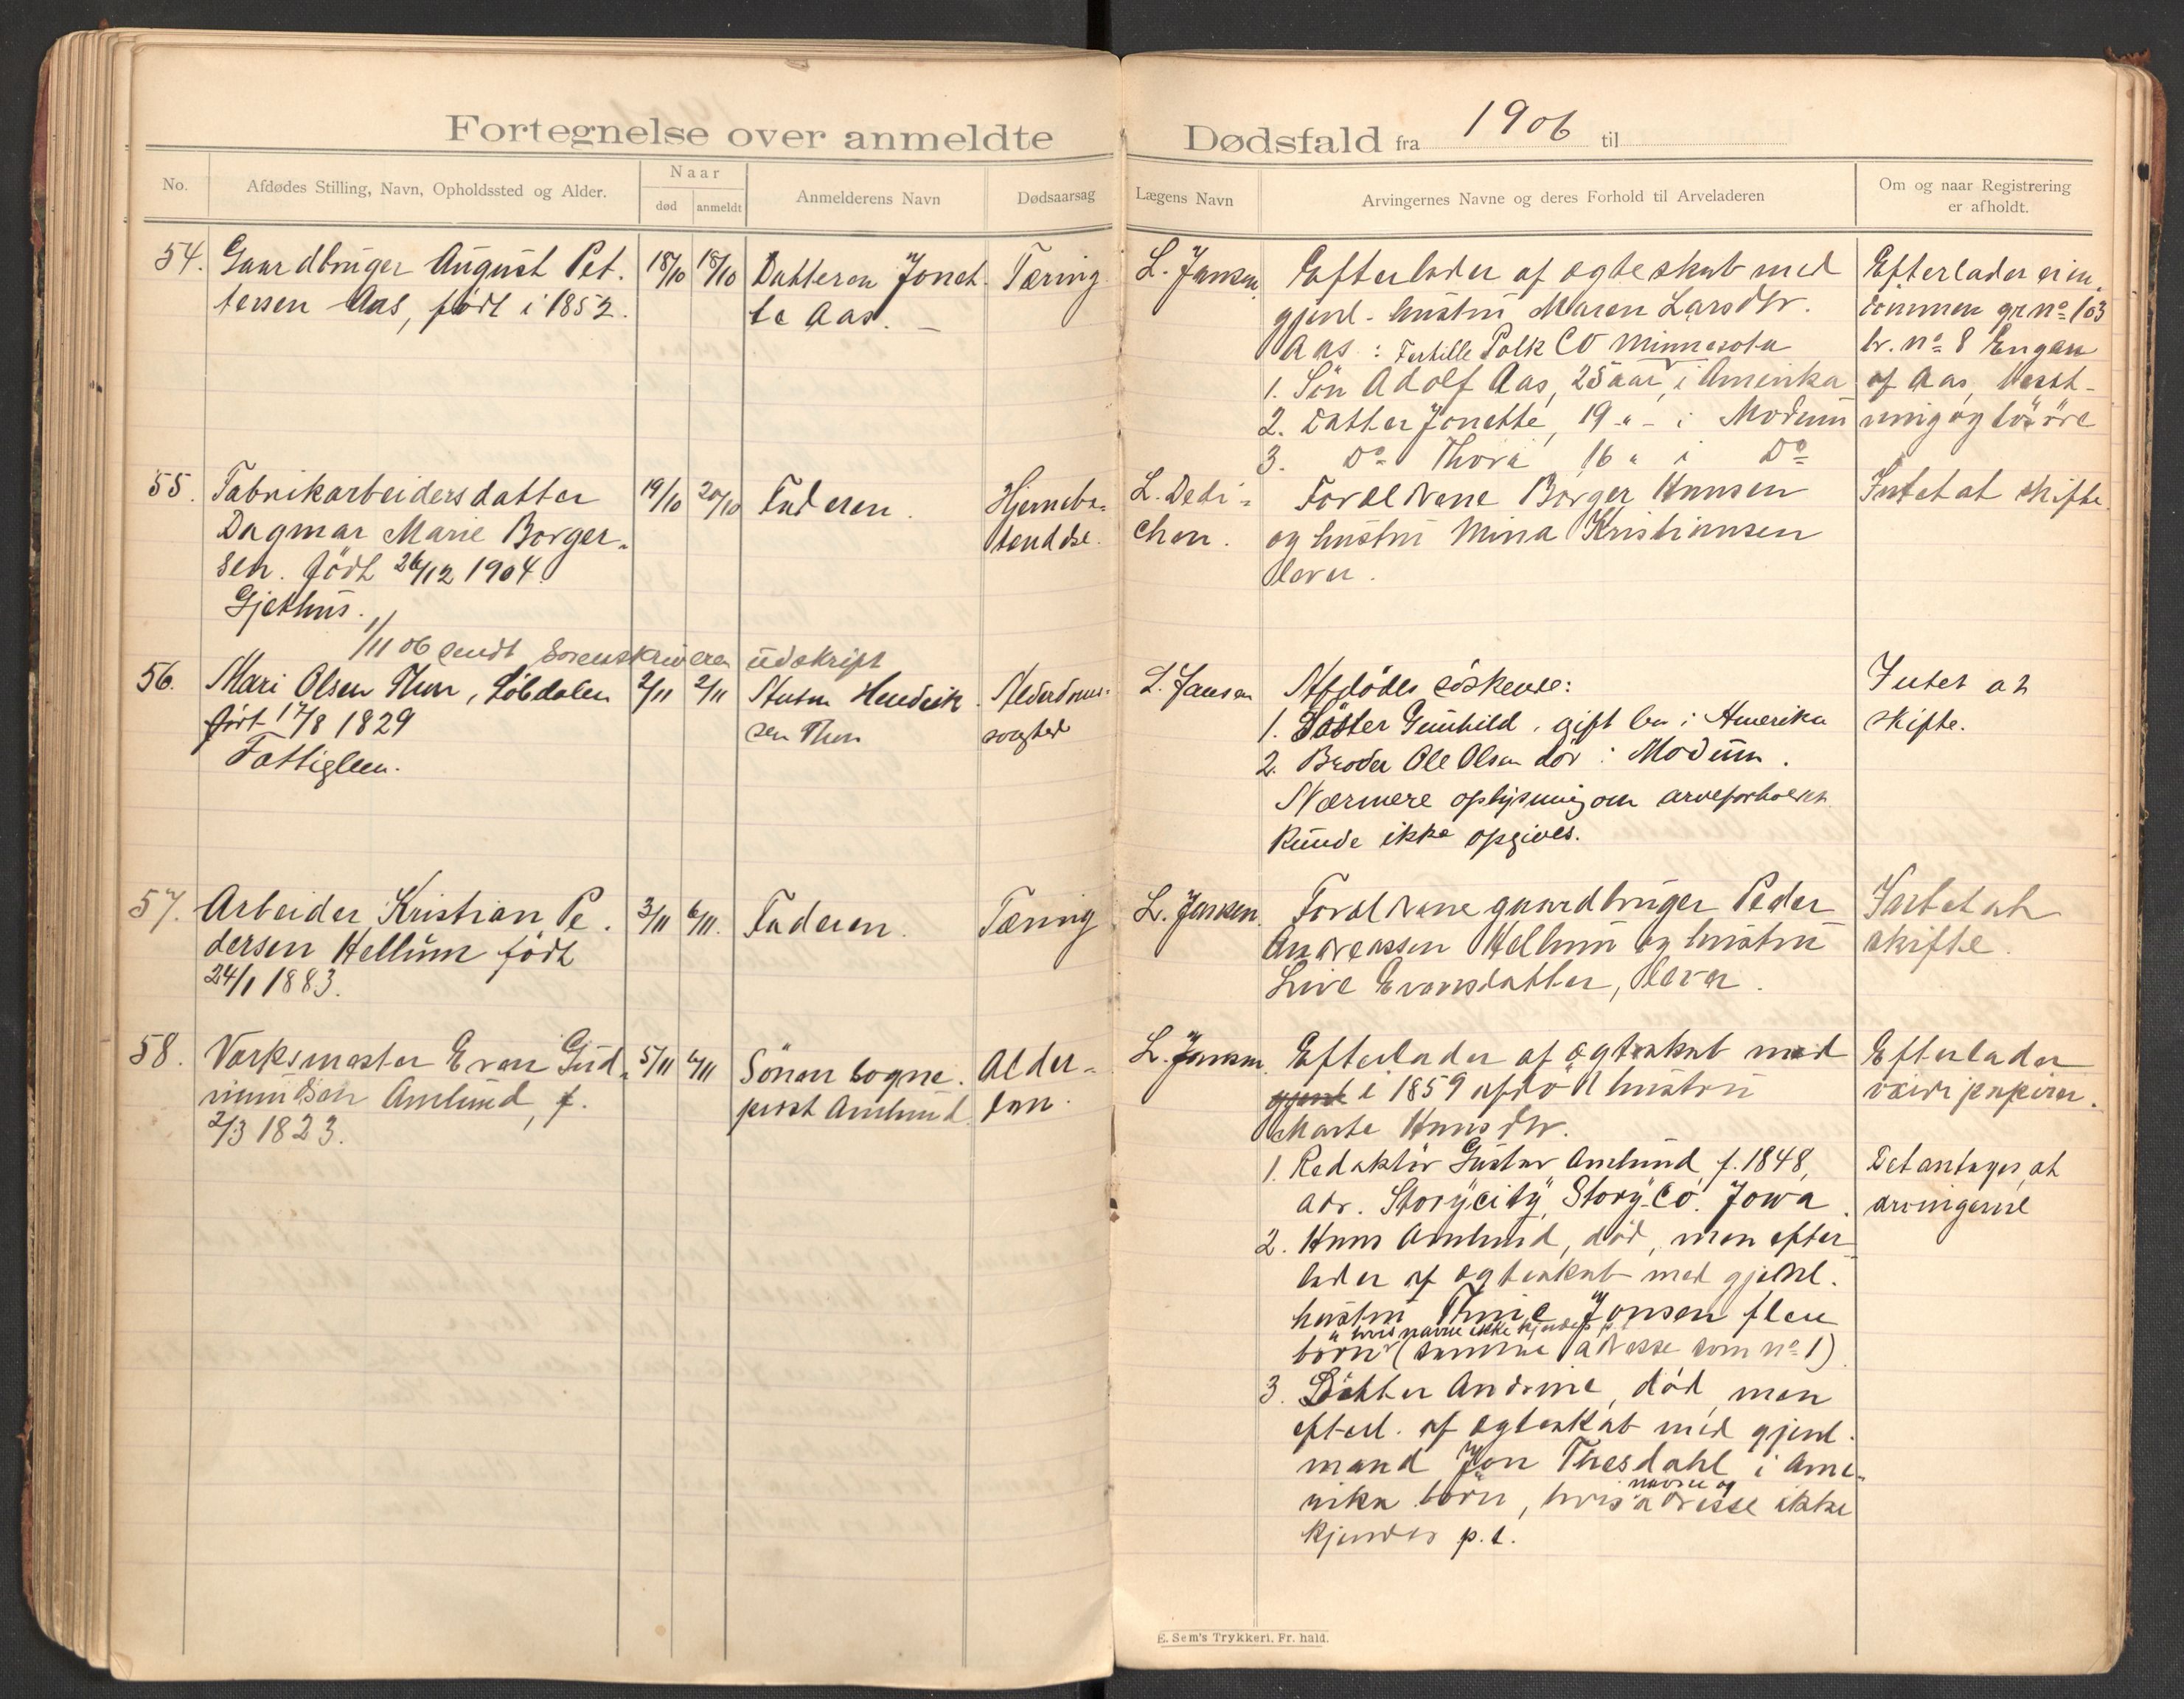 Fortegnelse over anmeldte Dødsfald fra 1906 til
No.
Afdødes Stilling, Navn, Opholdssted og Alder.
Naar
død
anmeldt
Anmelderens Navn
Dødsaarsag
Lægens Navn
Arvingernes Navne og deres Forhold til Arveladeren
Om og naar Registrering
er afholdt.
54.
Gaardbruger August Pet-
tersen Aas, født i 1852.
18/10
18/10
Datteren Jonet-
te Aas.
Tæring
L. Jansen
Efterlader af ægteskab med
gjenl. hustru Maren Larsdtr.
Aas : Fertille Polk CO Minnesota
1. Sön Adolf Aas, 25 aar, i Amerika
2. Datter Jonette, 19 -"- i Modum
3. Do Thora 16 " i Do
Efterlader eien-
dommen gr no 103
br. no 8 Engen
af Aas, besæt-
ning og lösöre
55.
Fabrikarbeidersdatter
Dagmar Marie Borger-
sen. født 26/12 1904.
Gjethus.
19/10
20/10
Faderen.
Hjernebe-
tendelse.
L. Dedi-
chen.
Forældrene Borger Hansen
og hustru Mina Kristiansen
lever.
Intet at skifte.
1/11 06 sendt Sorenskriveren udskrift
56.
Mari Olsen Thon, Löbdalen
født 17/8 1829
Fattiglem.
2/11
2/11
Hendrik-
sen Thon
Alderdoms-
svaghed
L. Jansen
Afdødes söskende:
1. Söster Gunhild, gift bor i Amerika
2. Broder Ole Olsen dör i Modum.
Nærmere oplysning om arveforholdet
kunde ikke opgives.
Intet at
skifte.
57.
Arbeider Kristian Pe-
dersen Hellum født
24/1 1883.
3/11
6/11.
Faderen.
Tæring
L. Jansen.
Forældrene gaardbruger Peder
Andreassen Hellum og hustru
Live Evensdatter, lever.
Intet at
skifte.
58.
Værksmester Even Gud-
mundsen Amlund, f.
2/3 1823.
5/11
6/11
Sönen sogne-
prest Amlund.
Alder-
dom.
L. Jansen.
Efterlader af ægteskab med
gjenl i 1859 afdöd hustru
Marte Hansdtr.
1. Redaktör Gustav Amlund, f. 1848,
adr. Storycity, Story-Co. Jowa.
2. Hans Amlund, död, men efter-
lader af ægteskab med gjenl.
hustru Thrine Jonsen flere
hvis navne ikke kjendes
börn (samme adresse som no 1)
3. Datter Andrine, död, men
efterl. af ægteskab med gjenl.
mand Jon Thesdahl i Ame-
navne og
rika börn, hvis adresse ikke
kjendes p.t.
Efterlader
værdipapirer.
Det antages, at
arvingerne
E. Sem's Trykkeri, Fr. hald.